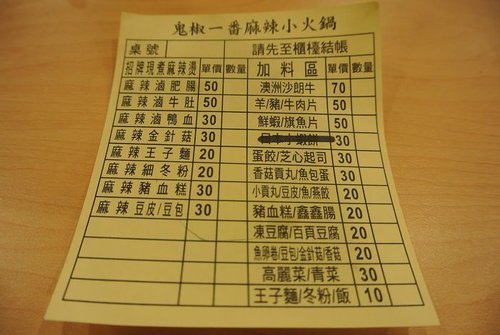 鬼椒一番麻辣小火鍋
桌號 請先至櫃檯結帳
招牌現煮麻辣燙 單價 數量 加料區 單價 數量
麻辣滷肥腸 50 澳洲沙朗牛 70
麻辣滷牛肚 50 羊/豬/牛肉片 50
麻辣滷鴨血 30 鮮蝦/旗魚片 50
麻辣金針菇 30 日本小蝦餅 30
麻辣王子麵 20 蛋餃/芝心起司 30
麻辣細冬粉 20 香菇貢丸/魚包蛋 30
麻辣豬血糕 30 小貢丸/豆皮/魚/燕餃 20
麻辣豆皮/豆包 30 豬血糕/鑫鑫腸 20
凍豆腐/百頁豆腐 20
魚卵卷/豆包/金針菇/香菇 20
高麗菜/青菜 30
王子麵/冬粉/飯 10